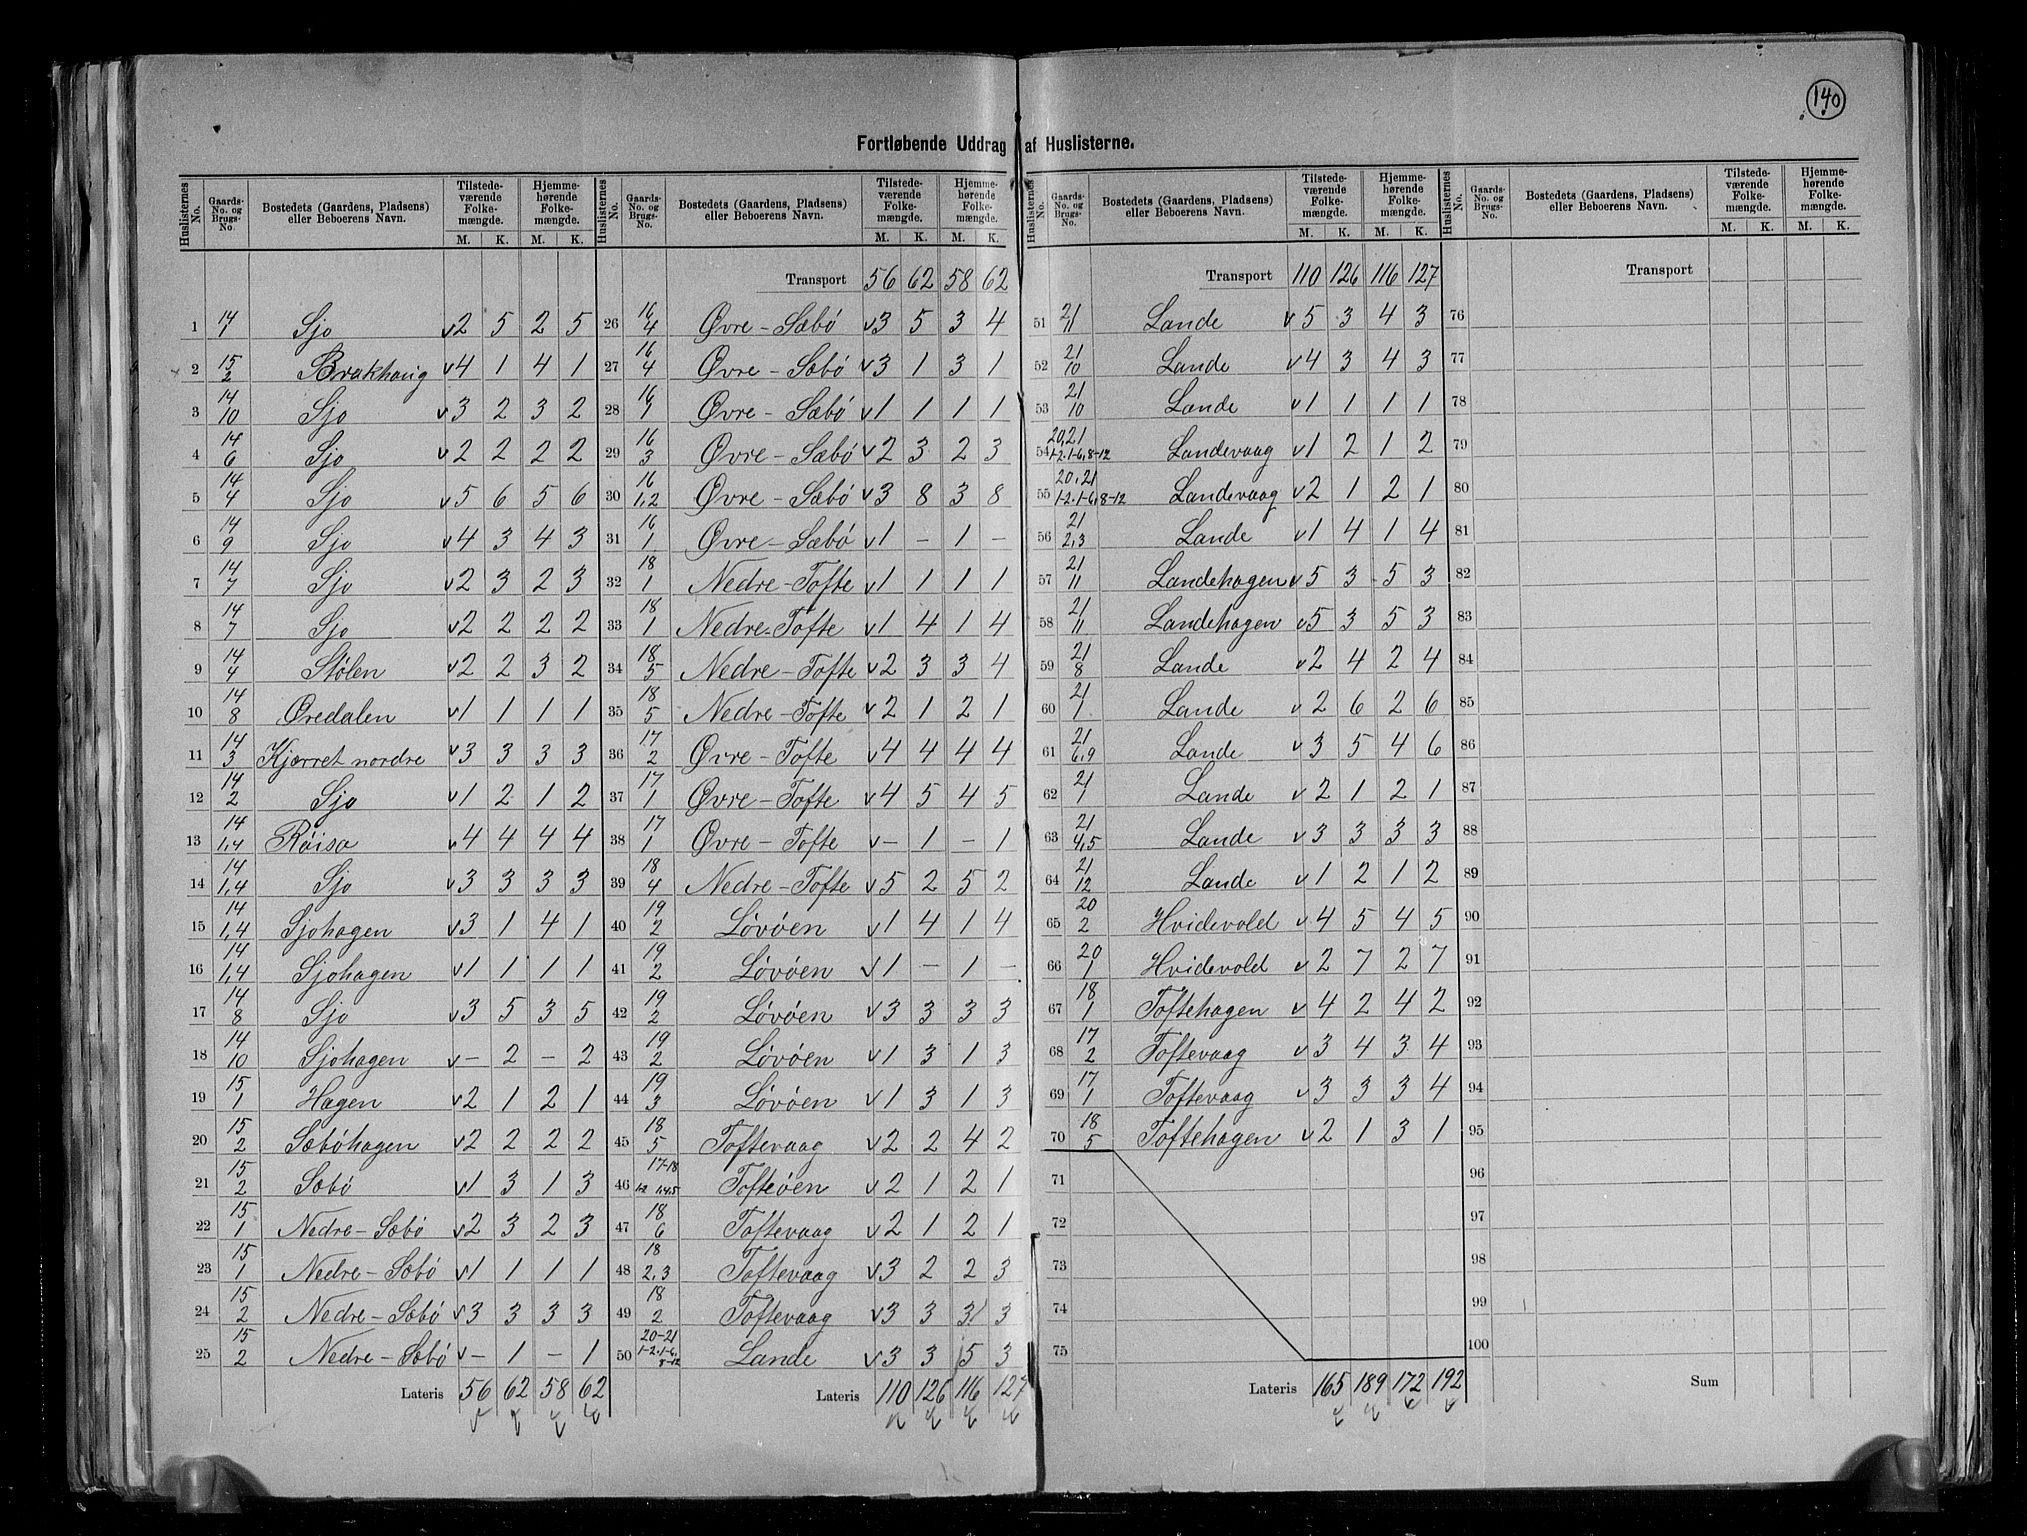 140
Fortløbende Uddrag af Huslisterne.
Huslisternes No. Gaards-No. og Brugs-No. Bostedets (Gaardens, Pladsens) eller Beboerens Navn. Tilstedeværende Folkemængde. M. K. Hjemmehørende Folkemængde. M. K.
1 14/1 Sjo v2 5 2 5
2 15/2 Brakhaug v4 1 4 1
3 14/10 Sjo v3 2 3 2
4 14/6 Sjo v2 2 2 2
5 14/4 Sjo v5 6 5 6
6 14/9 Sjo v4 3 4 3
7 14/7 Sjo v2 3 2 3
8 14/7 Sjo v2 2 2 2
9 14/4 Stølen v2 2 3 2
10 14/8 Øredalen v1 1 1 1
11 14/3 Kjærret nordre v3 3 3 3
12 14/2 Sjo v1 2 1 2
13 14/1,4 Røisa v4 4 4 4
14 14/1,4 Sjo v3 3 3 3
15 14/1,4 Sjohagen v3 1 4 1
16 14/1,4 Sjohagen v1 1 1 1
17 14/8 Sjo v3 5 3 5
18 14/10 Sjohagen v- 2 - 2
19 15/1 Hagen v2 1 2 1
20 15/2 Sæbøhagen v2 2 2 2
21 15/2 Sæbø v1 3 1 3
22 15/1 Nedre-Sæbø v2 3 2 3
23 15/1 Nedre-Sæbø v1 1 1 1
24 15/2 Nedre-Sæbø v3 3 3 3
25 15/2 Nedre-Sæbø v- 1 - 1
Lateris 56 62 58 62
Huslisternes No. Gaards-No. og Brugs-No. Bostedets (Gaardens, Pladsens) eller Beboerens Navn. Tilstedeværende Folkemængde. M. K. Hjemmehørende Folkemængde. M. K.
Transport 56 62 58 62
26 16/4 Øvre-Sæbø v3 5 3 4
27 16/4 Øvre-Sæbø v3 1 3 1
28 16/1 Øvre-Sæbø v1 1 1 1
29 16/3 Øvre-Sæbø v2 3 2 3
30 16/1,2 Øvre-Sæbø v3 8 3 8
31 16/1 Øvre-Sæbø v1 - 1 -
32 18/1 Nedre-Tofte v1 1 1 1
33 18/1 Nedre-Tofte v1 4 1 4
34 18/5 Nedre-Tofte v2 3 3 4
35 18/5 Nedre-Tofte v2 1 2 1
36 17/2 Øvre-Tofte v4 4 4 4
37 17/1 Øvre-Tofte v4 5 4 5
38 17/1 Øvre-Tofte v- 1 - 1
39 18/4 Nedre-Tofte v5 2 5 2
40 19/2 Løvøen v1 4 1 4
41 19/2 Løvøen v1 - 1 -
42 19/2 Løvøen v3 3 3 3
43 19/2 Løvøen v1 3 1 3
44 19/3 Løvøen v1 3 1 3
45 18/5 Toftevaag v2 2 4 2
46 17-18/1-2 1,4,5 Tofteøen v2 1 2 1
47 18/6 Toftevaag v2 1 2 1
48 18/2,3 Toftevaag v3 2 2 3
49 18/2 Toftevaag v3 3 3 3
50 20-21/1-2.1-6,8-12 Lande v3 3 5 3
Lateris 110 126 116 127
Huslisternes No. Gaards-No. og Brugs-No. Bostedets (Gaardens, Pladsens) eller Beboerens Navn. Tilstedeværende Folkemængde. M. K. Hjemmehørende Folkemængde. M. K.
Transport 110 126 116 127
51 21/11 Lande v5 3 4 3
52 21/10 Lande v4 3 4 3
53 21/10 Lande v1 1 1 1
54 20,21/1-2.1-6,8-12 Landevaag v1 2 1 2
55 20,21/1-2.1-6,8-12 Landevaag v2 1 2 1
56 21/2,3 Lande v1 4 1 4
57 21/11 Landehagen v5 3 5 3
58 21/11 Landehagen v5 3 5 3
59 21/8 Lande v2 4 2 4
60 21/1 Lande v2 6 2 6
61 21/6,9 Lande v3 5 4 6
62 21/1 Lande v2 1 2 1
63 21/4,5 Lande v3 3 3 3
64 21/12 Lande v1 2 1 2
65 20/2 Hvidevold v4 5 4 5
66 20/1 Hvidevold v2 7 2 7
67 18/1 Toftehagen v4 2 4 2
68 17/2 Toftevaag v3 4 3 4
69 17/1 Toftevaag v3 3 3 4
70 18/5 Toftehagen v2 1 3 1
71
72
73
74
75
Lateris 165 189 172 192
Huslisternes No. Gaards-No. og Brugs-No. Bostedets (Gaardens, Pladsens) eller Beboerens Navn. Tilstedeværende Folkemængde. M. K. Hjemmehørende Folkemængde. M. K.
Transport
76
77
78
79
80
81
82
83
84
85
86
87
88
89
90
91
92
93
94
95
96
97
98
99
100
Sum